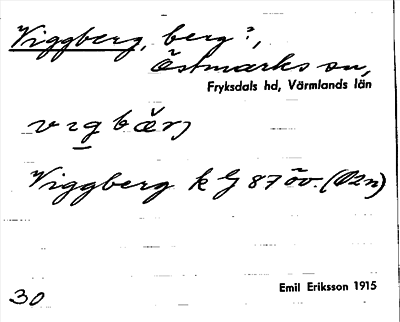 Viggberg, berg?,
Östmarks sn,
Fryksdals hd, Värmlands län
Viggberg k G 87 öv. (Ö2n)
30
Emil Eriksson 1915